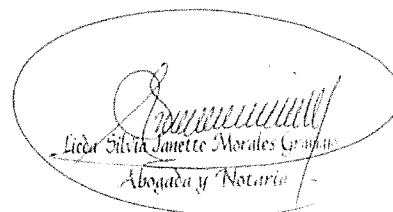 Licda Silvia Janette Morales
Abogada y Notaria